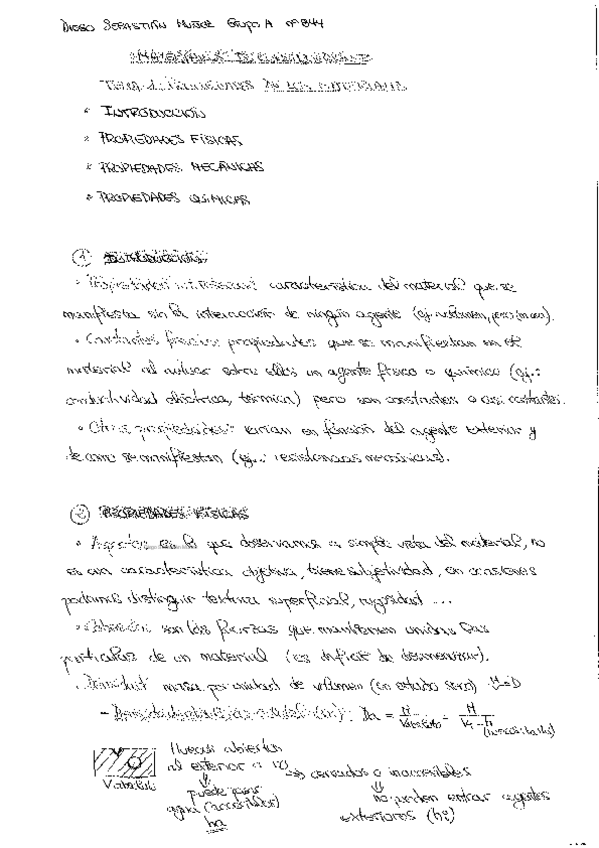 DIEGO SEBASTIÁN MUÑOZ GRUPO A nº 844
MATERIALES DE CONSTRUCCIÓN
TEMA 1: PROPIEDADES DE LOS MATERIALES
* INTRODUCCIÓN
* PROPIEDADES FÍSICAS
* PROPIEDADES MECÁNICAS
* PROPIEDADES QUÍMICAS
① INTRODUCCIÓN
· Propiedad intrínseca: característica del material que se
manifiesta sin la interacción de ningún agente (ej. volumen, peso/masa).
· Constantes físicas: propiedades que se manifiestan en el
material al actuar sobre ellos un agente físico o químico (ej.:
conductividad eléctrica, térmica) pero son constantes o casi constantes.
· Otras propiedades: varían en función del agente exterior y
de como se manifiestan (ej.: resistencias mecánicas).
② PROPIEDADES FÍSICAS
· Aspecto: es lo que observamos a simple vista del material, no
es una característica objetiva, tiene subjetividad, en ocasiones
podemos distinguir textura superficial, rugosidad ...
· Cohesión: son las fuerzas que mantienen unidas las
partículas de un material (es difícil de desmenuzar).
· Densidad: masa por unidad de volumen (en estado seco)
Da = M
Huecos abiertos
al exterior a
cerrados o inaccesibles
puede pasar
no pueden entrar agentes
agua (accesibles)
exteriores
ha